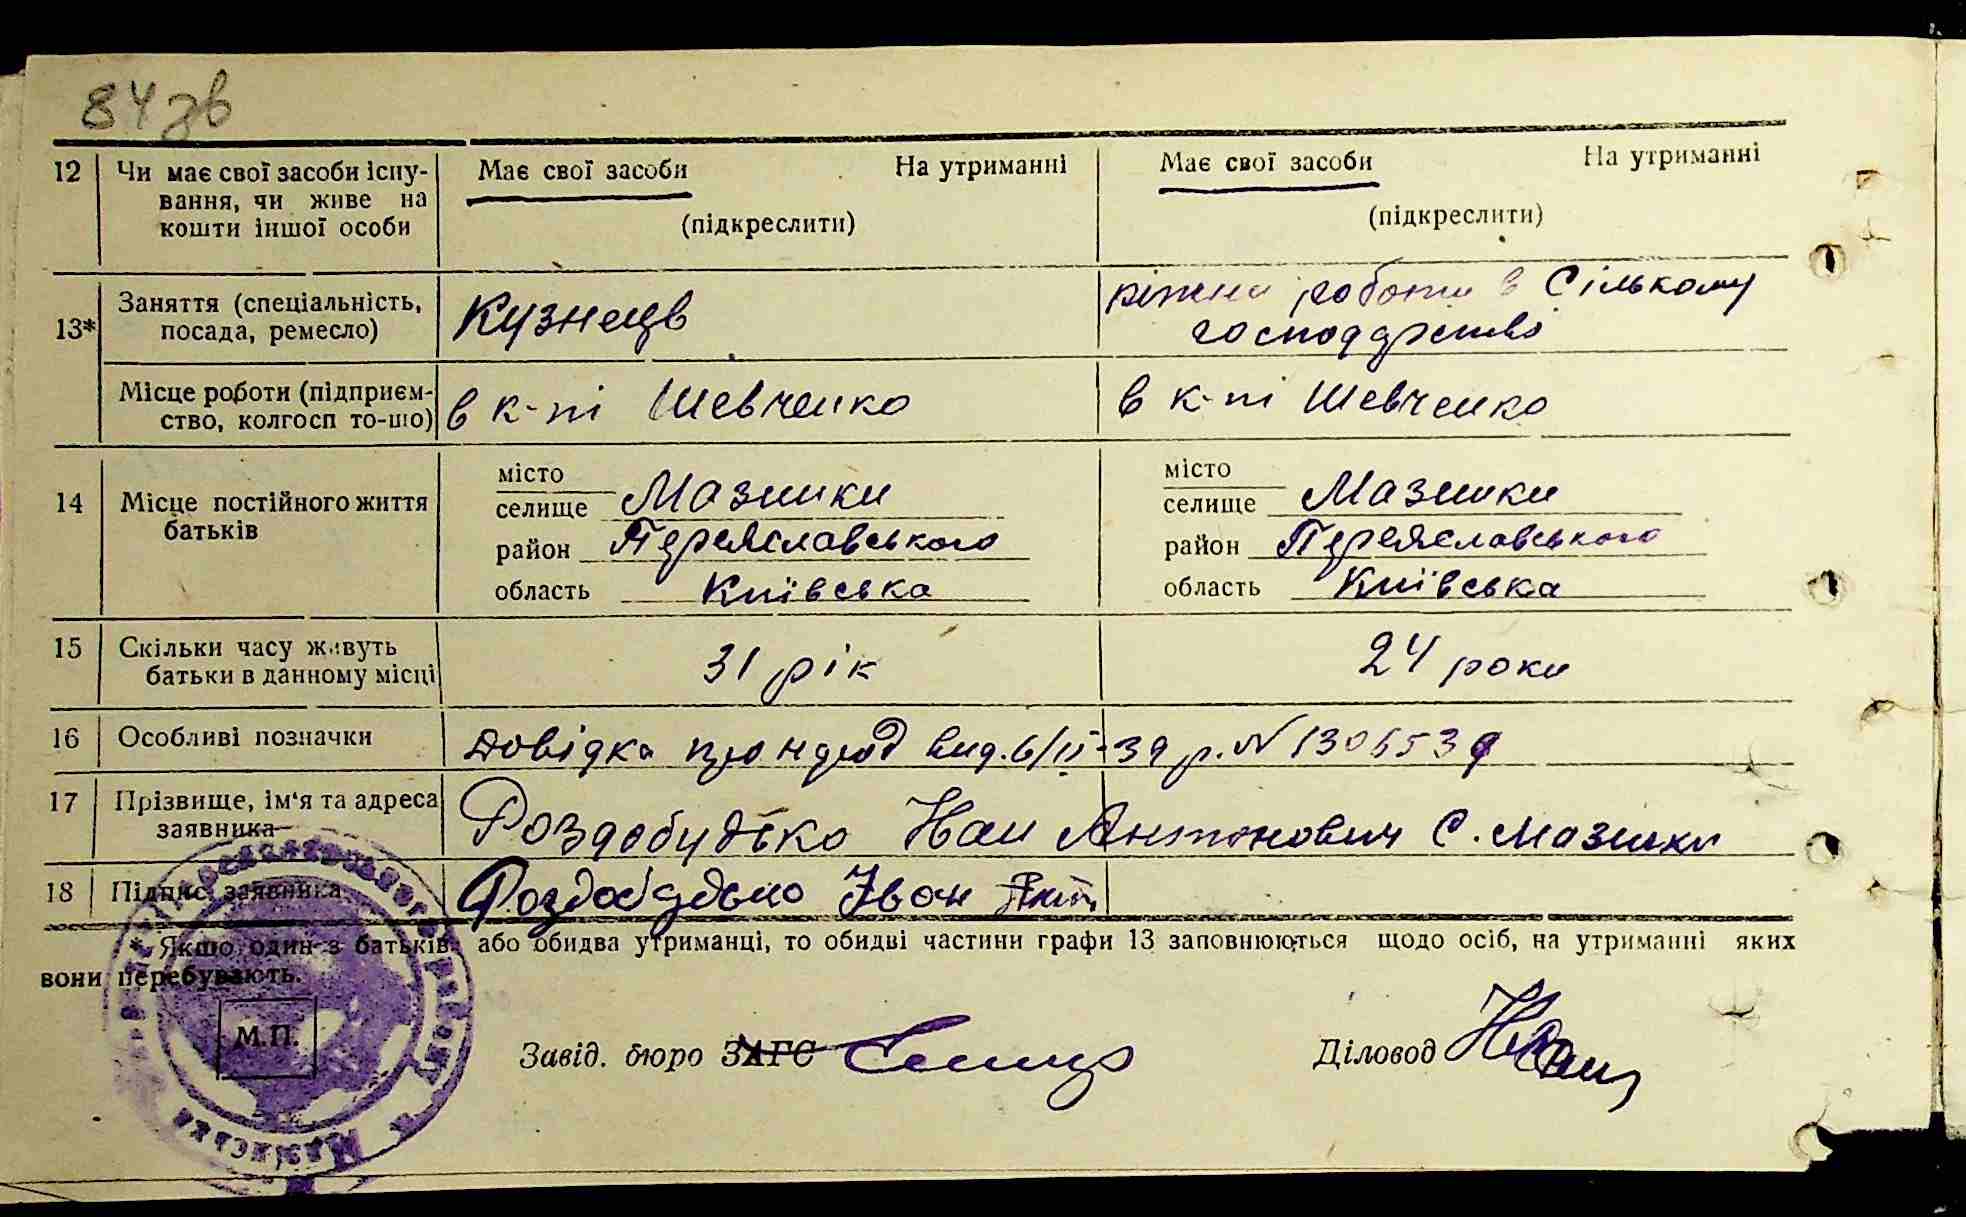 84 зв
12 Чи має свої засоби існу-
вання, чи живе на
кошти іншої особи
Має свої засоби На утриманні
(підкреслити)
Має свої засоби На утриманні
(підкреслити)
13* Заняття (спеціальність,
посада, ремесло)
Кузнець
ріжна робота в Сількому
господарстві
Місце роботи (підприєм-
ство, колгосп то-що)
в к-пі Шевченко
в к-пі Шевченко
14 Місце постійного життя
батьків
місто
селище Мазинки
район Переяславського
область Київська
місто
селище Мазинки
район Переяславського
область Київська
15 Скільки часу живуть
батьки в данному місці
31 рік
24 роки
16 Особливі позначки
Довідка про вид. 6/II-39 р. №
17 Прізвище, ім'я та адреса
заявника
Роздобудько Іван Антонович С. Мазинки
18 Підпис заявника
Роздобудько Іван Ант.
Якщо один з батьків або обидва утриманці, то обидві частини графи 13 заповнюються щодо осіб, на утриманні яких
вони перебувають.
М.П.
Завід. бюро ЗАГС
Діловод